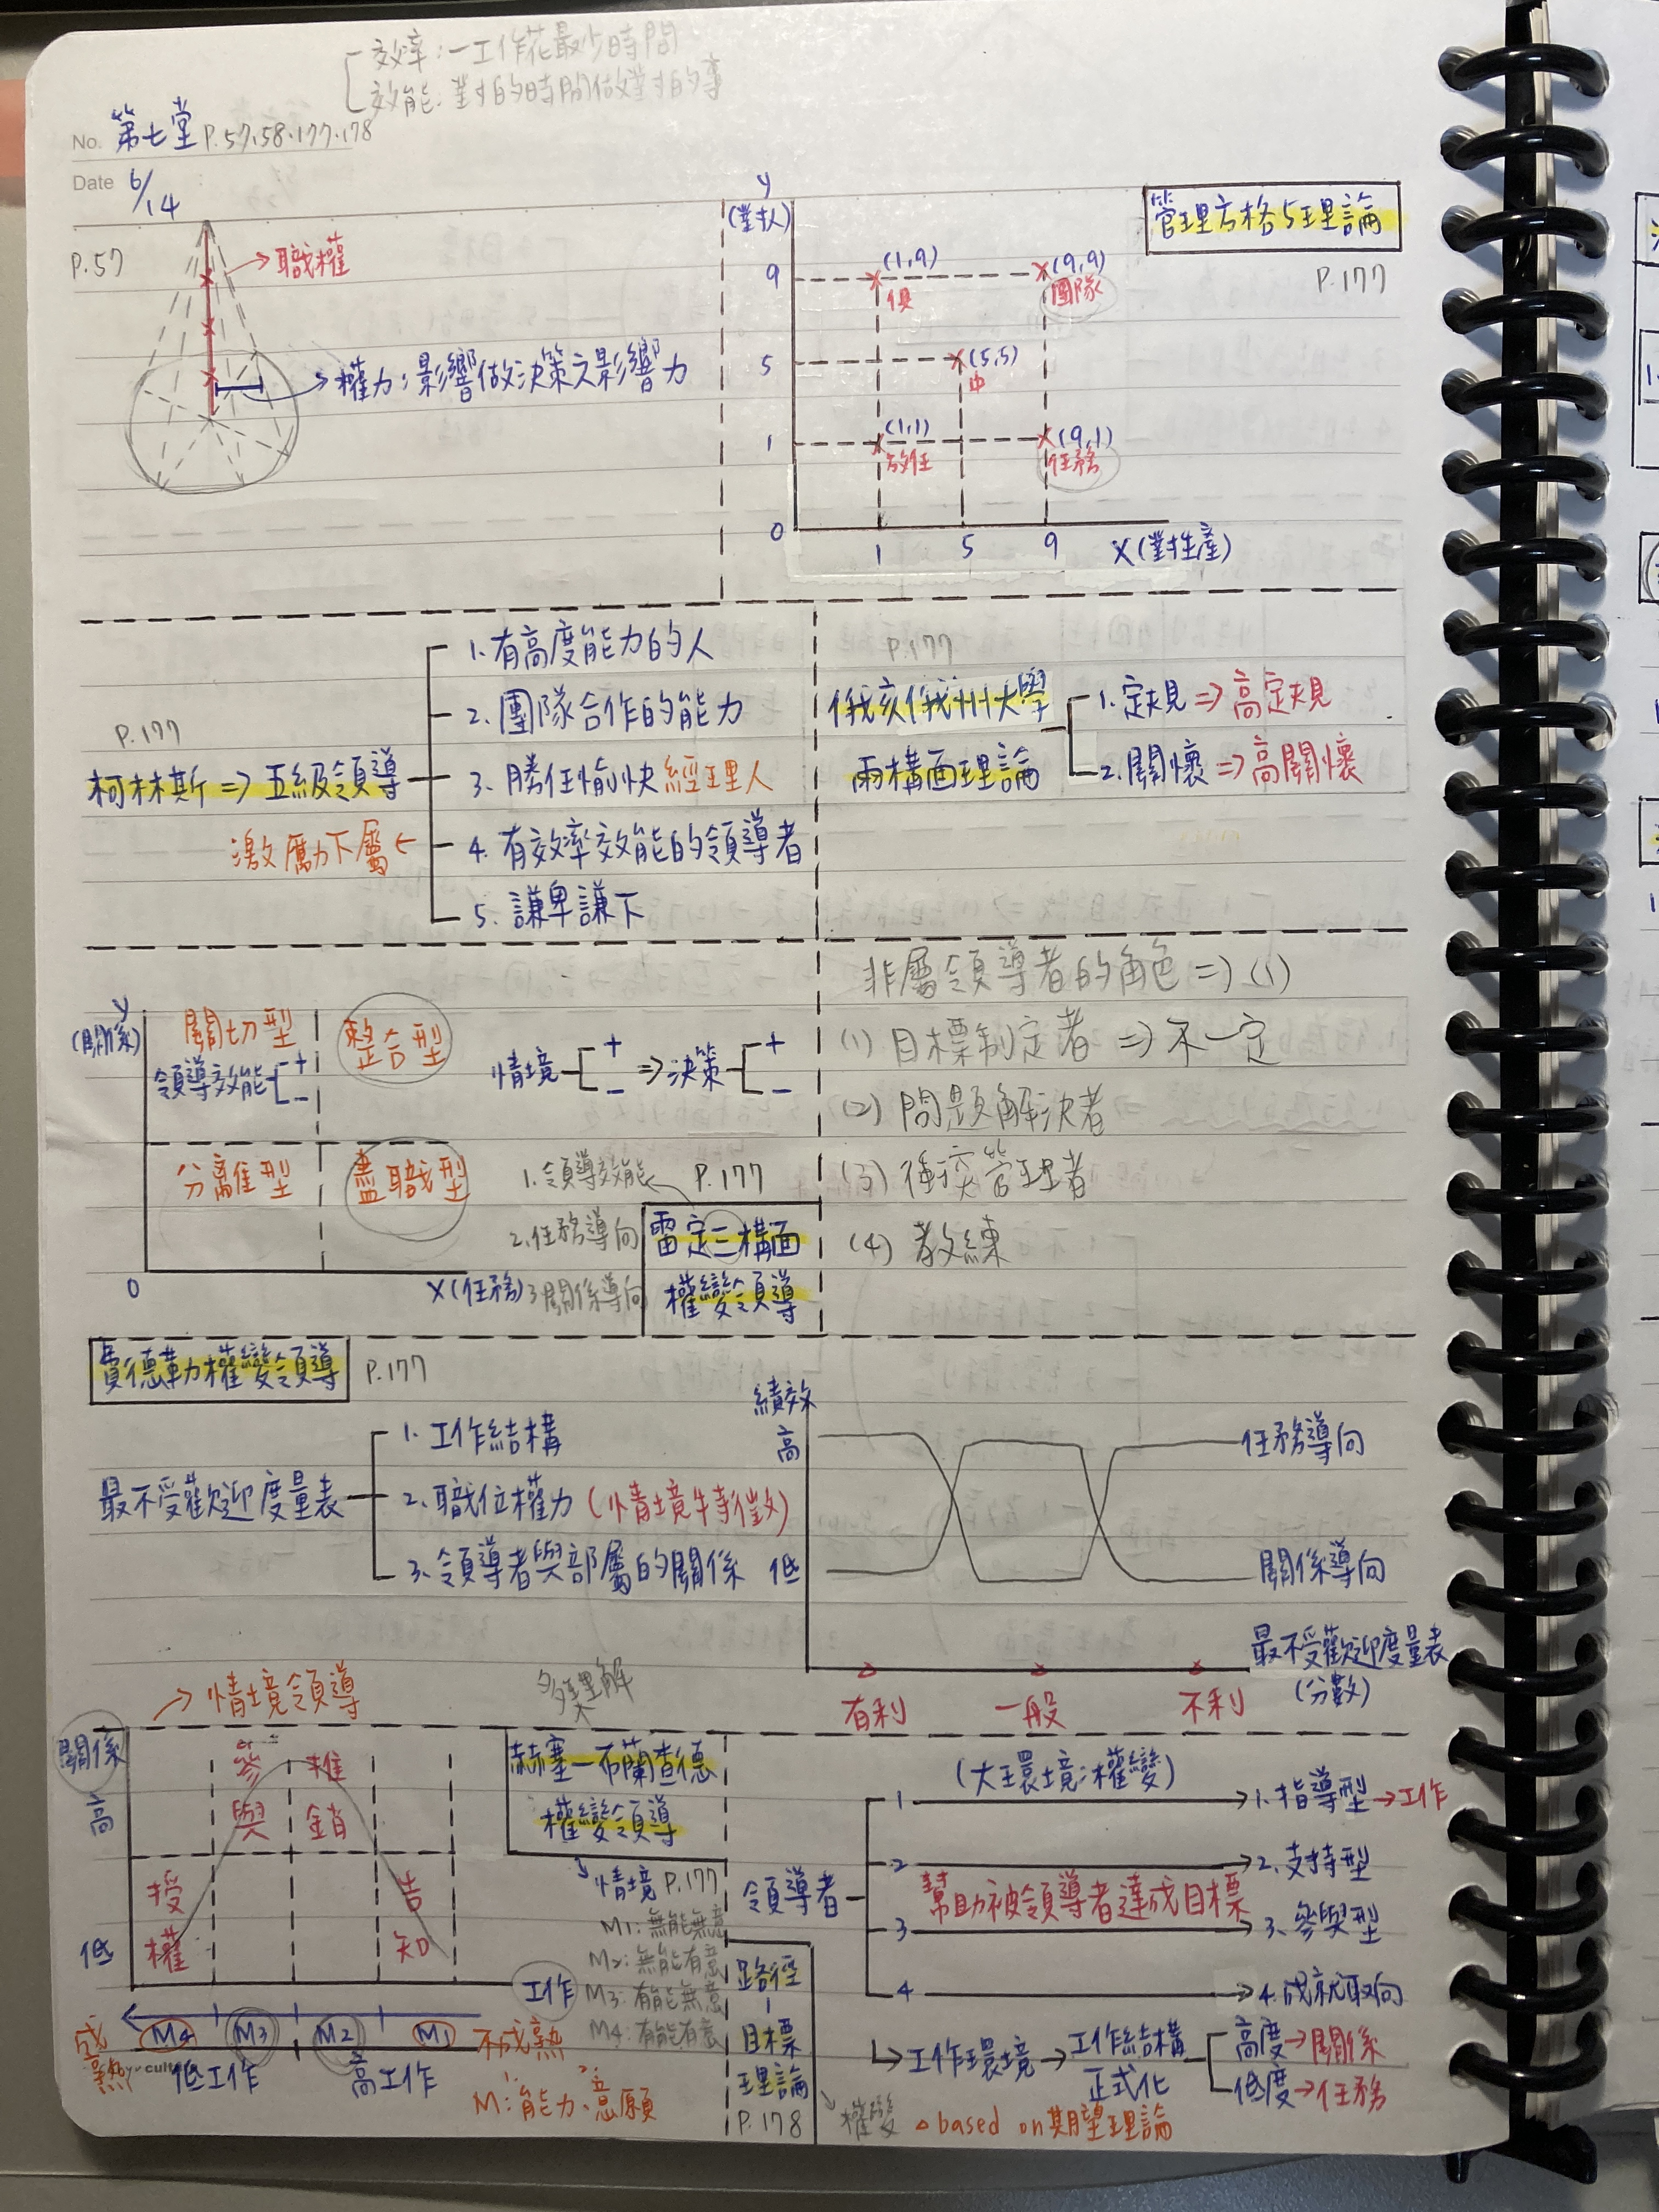 效率：一工作花最少時間
效能：對的時間做對的事
No. 第七堂 P.57、58、177、178
Date 6/14
P.57
職權
權力：影響做決策之影響力
管理方格5理論
P.177
y
(對人)
9
5
1
0
(1,9)
俱
(9,9)
團隊
(5,5)
中
(1,1)
放任
(9,1)
任務
1 5 9 X(對生產)
P.177
柯林斯⇒五級領導
激勵下屬←
1.有高度能力的人
2.團隊合作的能力
3.勝任愉快經理人
4.有效率效能的領導者
5.謙卑謙下
P.177
俄亥俄州大學
兩構面理論
1.定規⇒高定規
2.關懷⇒高關懷
y
(關係)
關切型
領導效能 + −
整合型
分離型
盡職型
0
X(任務)
情境 + − ⇒決策 + −
1.領導效能
2.任務導向
3.關係導向
P.177
雷定三構面
權變領導
非屬領導者的角色⇒(1)
(1)目標制定者⇒不一定
(2)問題解決者
(3)衝突管理者
(4)教練
費德勒權變領導 P.177
最不受歡迎度量表
1.工作結構
2.職位權力(情境特徵)
3.領導者與部屬的關係
績效
高
低
任務導向
關係導向
有利 一般 不利
最不受歡迎度量表
(分數)
→情境領導
多理解
關係
高
低
參與
推銷
授權
告知
工作
赫塞—布蘭查德
權變領導
情境 P.177
M1:無能無意
M2:無能有意
M3:有能無意
M4:有能有意
成熟 M4 M3 M2 M1 不成熟
低工作 高工作
M:1.能力、2.意願
(大環境:權變)
領導者
幫助被領導者達成目標
1 1.指導型→工作
2 2.支持型
3 3.參與型
4 4.成就取向
路徑
-
目標
理論
P.178
工作環境→工作結構
正式化
高度→關係
低度→任務
權變 △based on期望理論